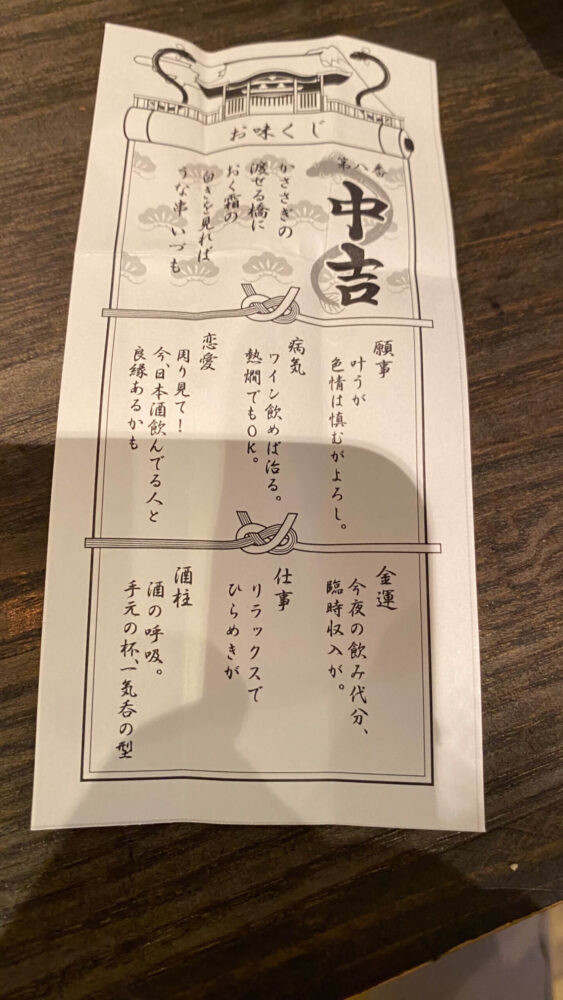 お味くじ
第八番
中吉
かささぎの
渡せる橋に
おく霜の
白きを見れば
うな串いづも
願事
叶うが
色情は慎むがよろし。
病気
ワイン飲めば治る。
熱燗でもOK。
恋愛
周り見て!
今、日本酒飲んでる人と
良縁あるかも
金運
今夜の飲み代分、
臨時収入が。
仕事
リラックスで
ひらめきが
酒柱
酒の呼吸。
手元の杯、一気呑の型